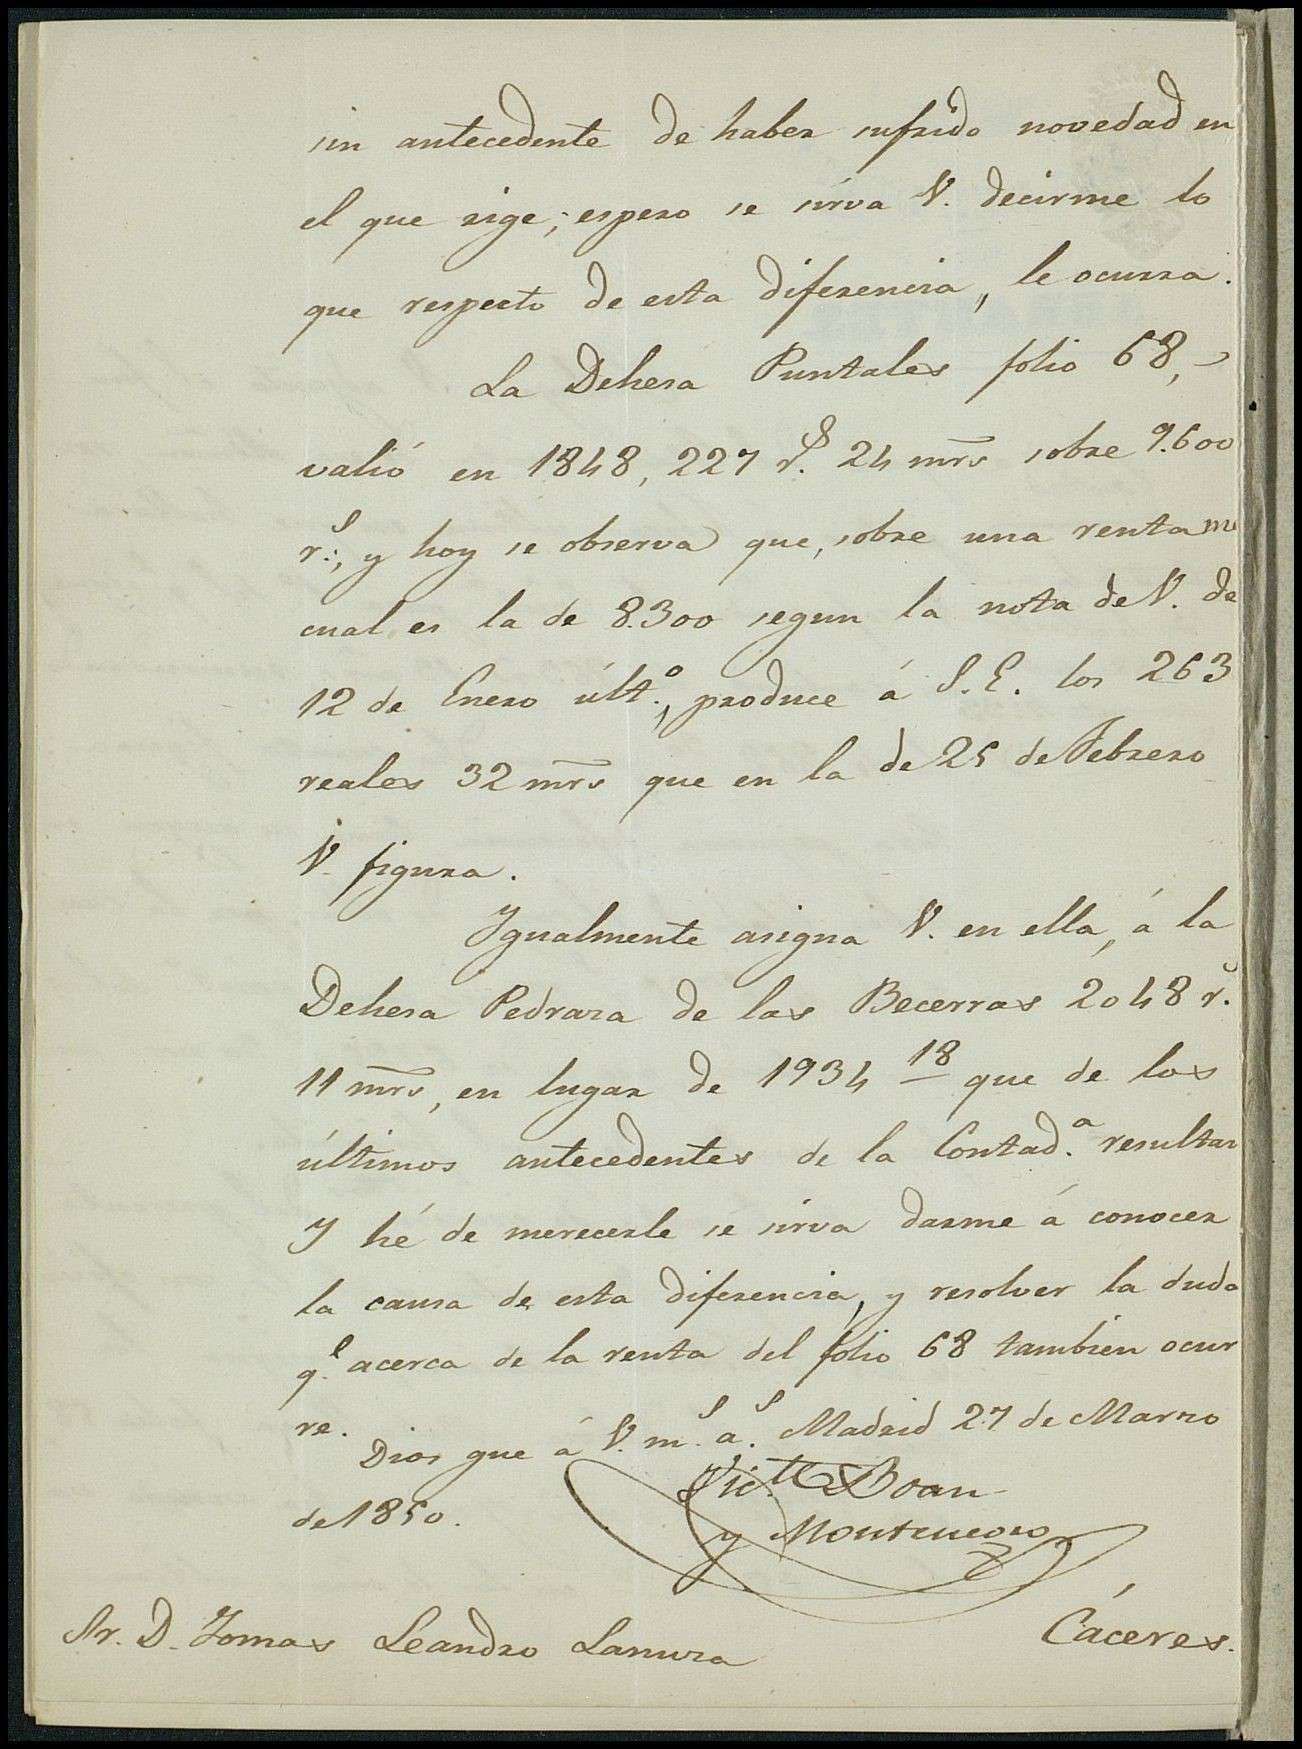 sin antecedente de haber sufrido novedad en
el que rige; espero se sirva V. decirme lo
que respecto de esta diferencia, le ocurra.
La Dehesa Puntales folio 68,
valió en 1848, 227 r.s 24 mrs sobre 9.600
r.s, y hoy se observa que, sobre una renta me
cual es la de 8.300 segun la nota de V. de
12 de Enero últ.o, produce á S.E. los 263
reales 32 mrs que en la de 25 de Febrero
V. figura.
Ygualmente asigna V. en ella, á la
Dehesa Pedraza de las Becerras 2048 r.s
11 mrs, en lugar de 1934 18 que de los
últimos antecedentes de la Contad.a resultan
y hé de merecerle se sirva darme á conocer
la causa de esta diferencia, y resolver la duda
q.e acerca de la renta del folio 68 tambien ocur
re.
Dios gue á V. m.s a.s Madrid 27 de Marzo
de 1850.
Vic.te Boan
y Montenegro
Sr. D. Tomas Leandro Lamura
Cáceres.